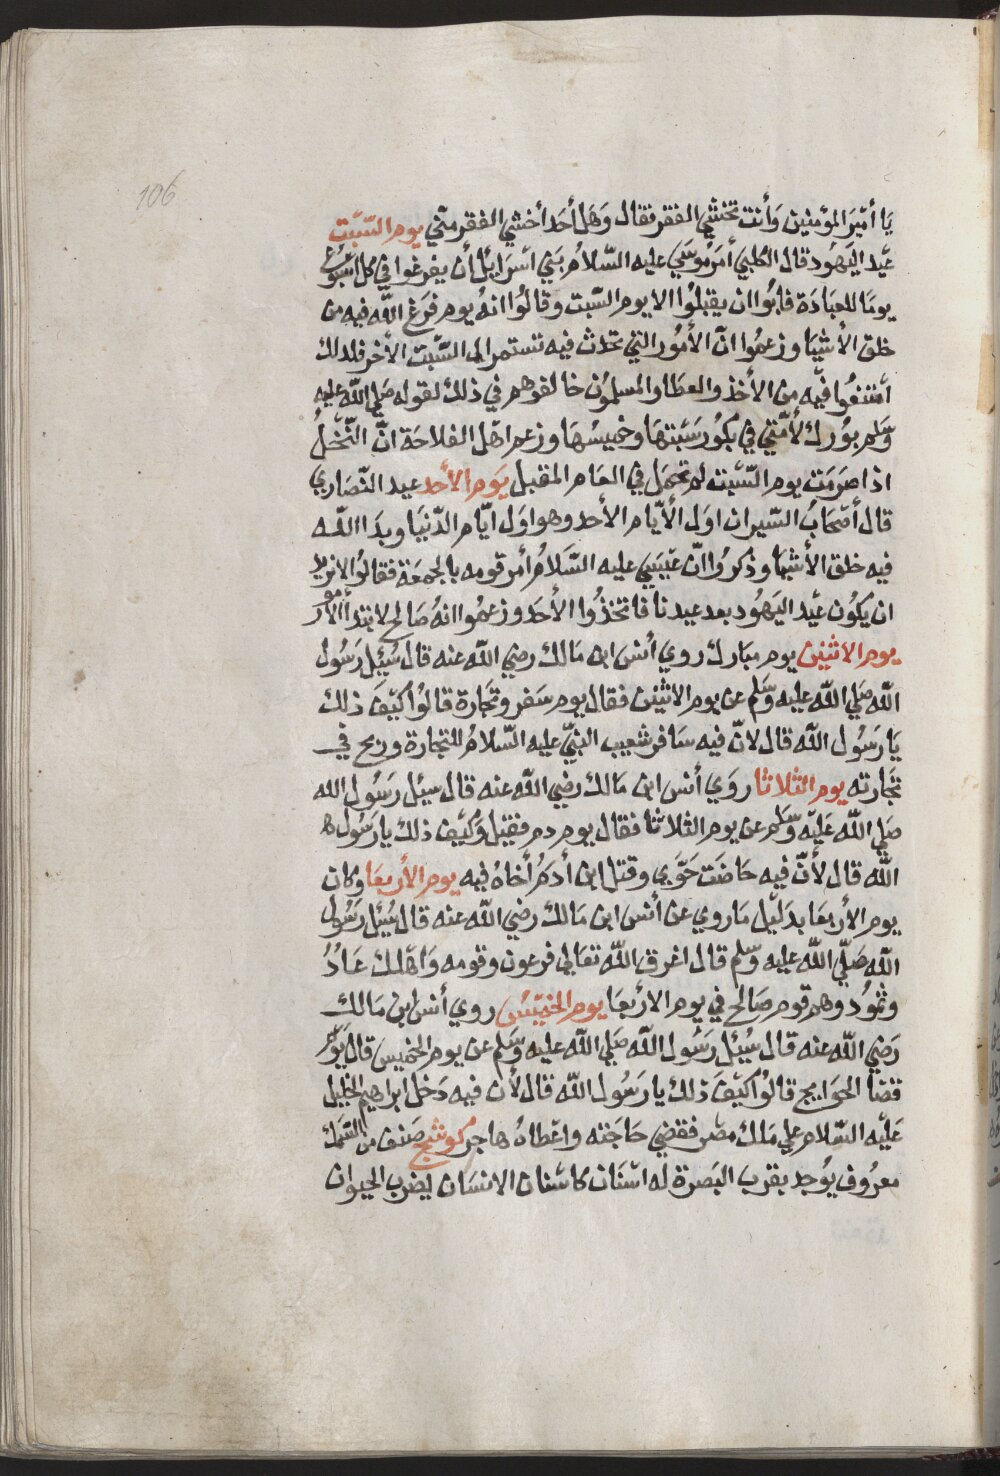 106
يَا أمَيْرَ المؤمنين وَأنت تخشي الفقر فقال وَهَل أحَد أخشي الفقر منّي يوم السّبْت
عَيد اليَهُود قال الكلبي أمَر مُوسَي عليه السّلامُ بَني اسْرَايَل أن يفرغوا في كل اسْبُوع
يومًا للعبَادَة فابُوا ان يقبلُوا الا يوم السّبت وقالُوا انهُ يوم فرَغ اللّه فيه من
خلق الأشيَا وزعمُوا انّ الأمُور التي تحدث فيه تستمر الي السّبت الأخر فلدلك
أمتنعُوا فيْه من الأخذ والعطَا والمسلمُون خالفوهم في ذلك لقوله صَلي اللّه عليه
وَسَلم بوُرك لأمّتي في بكُور سَبْتهَا وخميسُهَا وزعم اهَل الفلاحَة انّ النّخلُ
اذا صَرمَت يوم السّبت لم تحمَل في العَام المقبل يَوم الأحد عيد النّصَاري
قال أصْحَابُ السّير ان اوَل الأيّام الأحد وهو اوَل ايّام الدّنيَا وبدَا اللّه
فيه خلق الأشيَا وذكرُوا انّ عَيسَي عليه السّلامُ أمَر قومه بالجمعَة فقالوُا لا نريد
ان يكوُن عَيد اليَهُود بعد عيدنا فاتخذُوا الأحَد وزعمُوا انهُ صَالح لابتدأ الأمور
يوم الاثنين يوم مبَارك روي أنس ابن مَالك رضي اللّه عنه قال سُيَل رَسُول
اللّه صَلي اللّه عليه وسَلم عن يوم الاثنين فقال يوم سَفر وتجَارة قالوُا كيْفَ ذلك
يَا رَسُول اللّه قال لانّ فيه سَافر شعيب النبيّ عليه السّلامُ للتجارة وربح في
تجَارته يوم الثلاثا روَي أنس ابن مَالك رضي اللّه عنه قال سيَل رَسُول الله
صَلي اللّه عَليْه وسَلم عن يوم الثلاثا فقال يوم دم فقيْل وكيْف ذلك يا رَسُول
اللّه قال لأنّ فيه حَاضَت حَوَّي وقتل ابن أدمُ أخاهُ فيه يوم الأربعَا وكان
يوم الأربعَا بدَليْل مَا روي عن أنس ابن مَالك رضي اللّه عنه قال سُيَل رَسُول
اللّه صَلّي اللّه عليه وسَلم قال اغرق اللّه تعَالي فرعون وقومه وَاهَلك عَادُ
وثمُود وهم قوم صَالح في يوم الارْبعَا يوم الخميْسُ روي أنس ابن مَالك
رَضي اللّه عنه قال سُيَل رَسُول اللّه صَلي اللّه عليه وسَلم عن يوم الخميس قال يَوم
قضَا الحوَايج قالوُا كيْفَ ذلك يا رَسُول اللّه قال لأن فيه دَخل ابراهيم الخليل
عَليْه السّلام علي مَلك مصْر فقضي حَاجَته واعْطاهُ هاجر كوسَج صَنف من السَّمك
معرُوف يوُجد بقرب البَصرة له اسْنَان كاسْنان الانسَان يضرب الحيوان